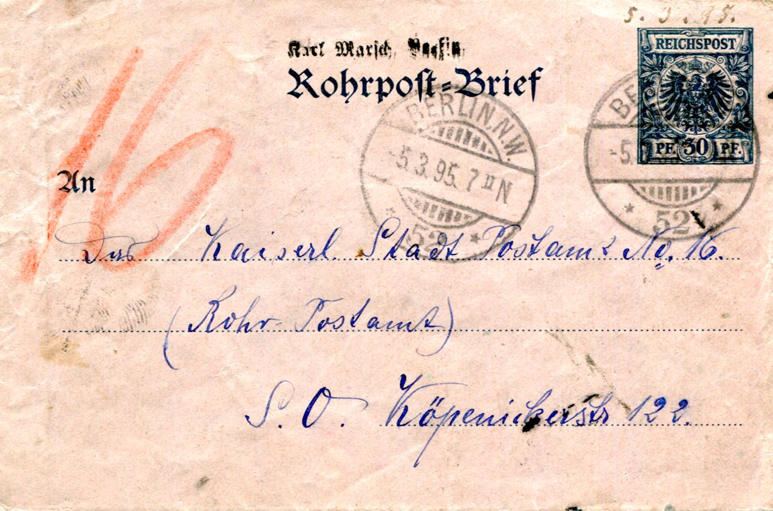 5. 3. 95.
REICHSPOST
PF. 30 PF.
Karl Marsch, Berlin
Rohrpost-Brief
BERLIN.N.W.
-5.3.95.7 II N
* 52 *
BE
-5.
* 52 *
16
An
Das Kaiserl Stadt Postamt No. 16.
(Rohr-Postamt)
S. O. Köpenickerstr 122.